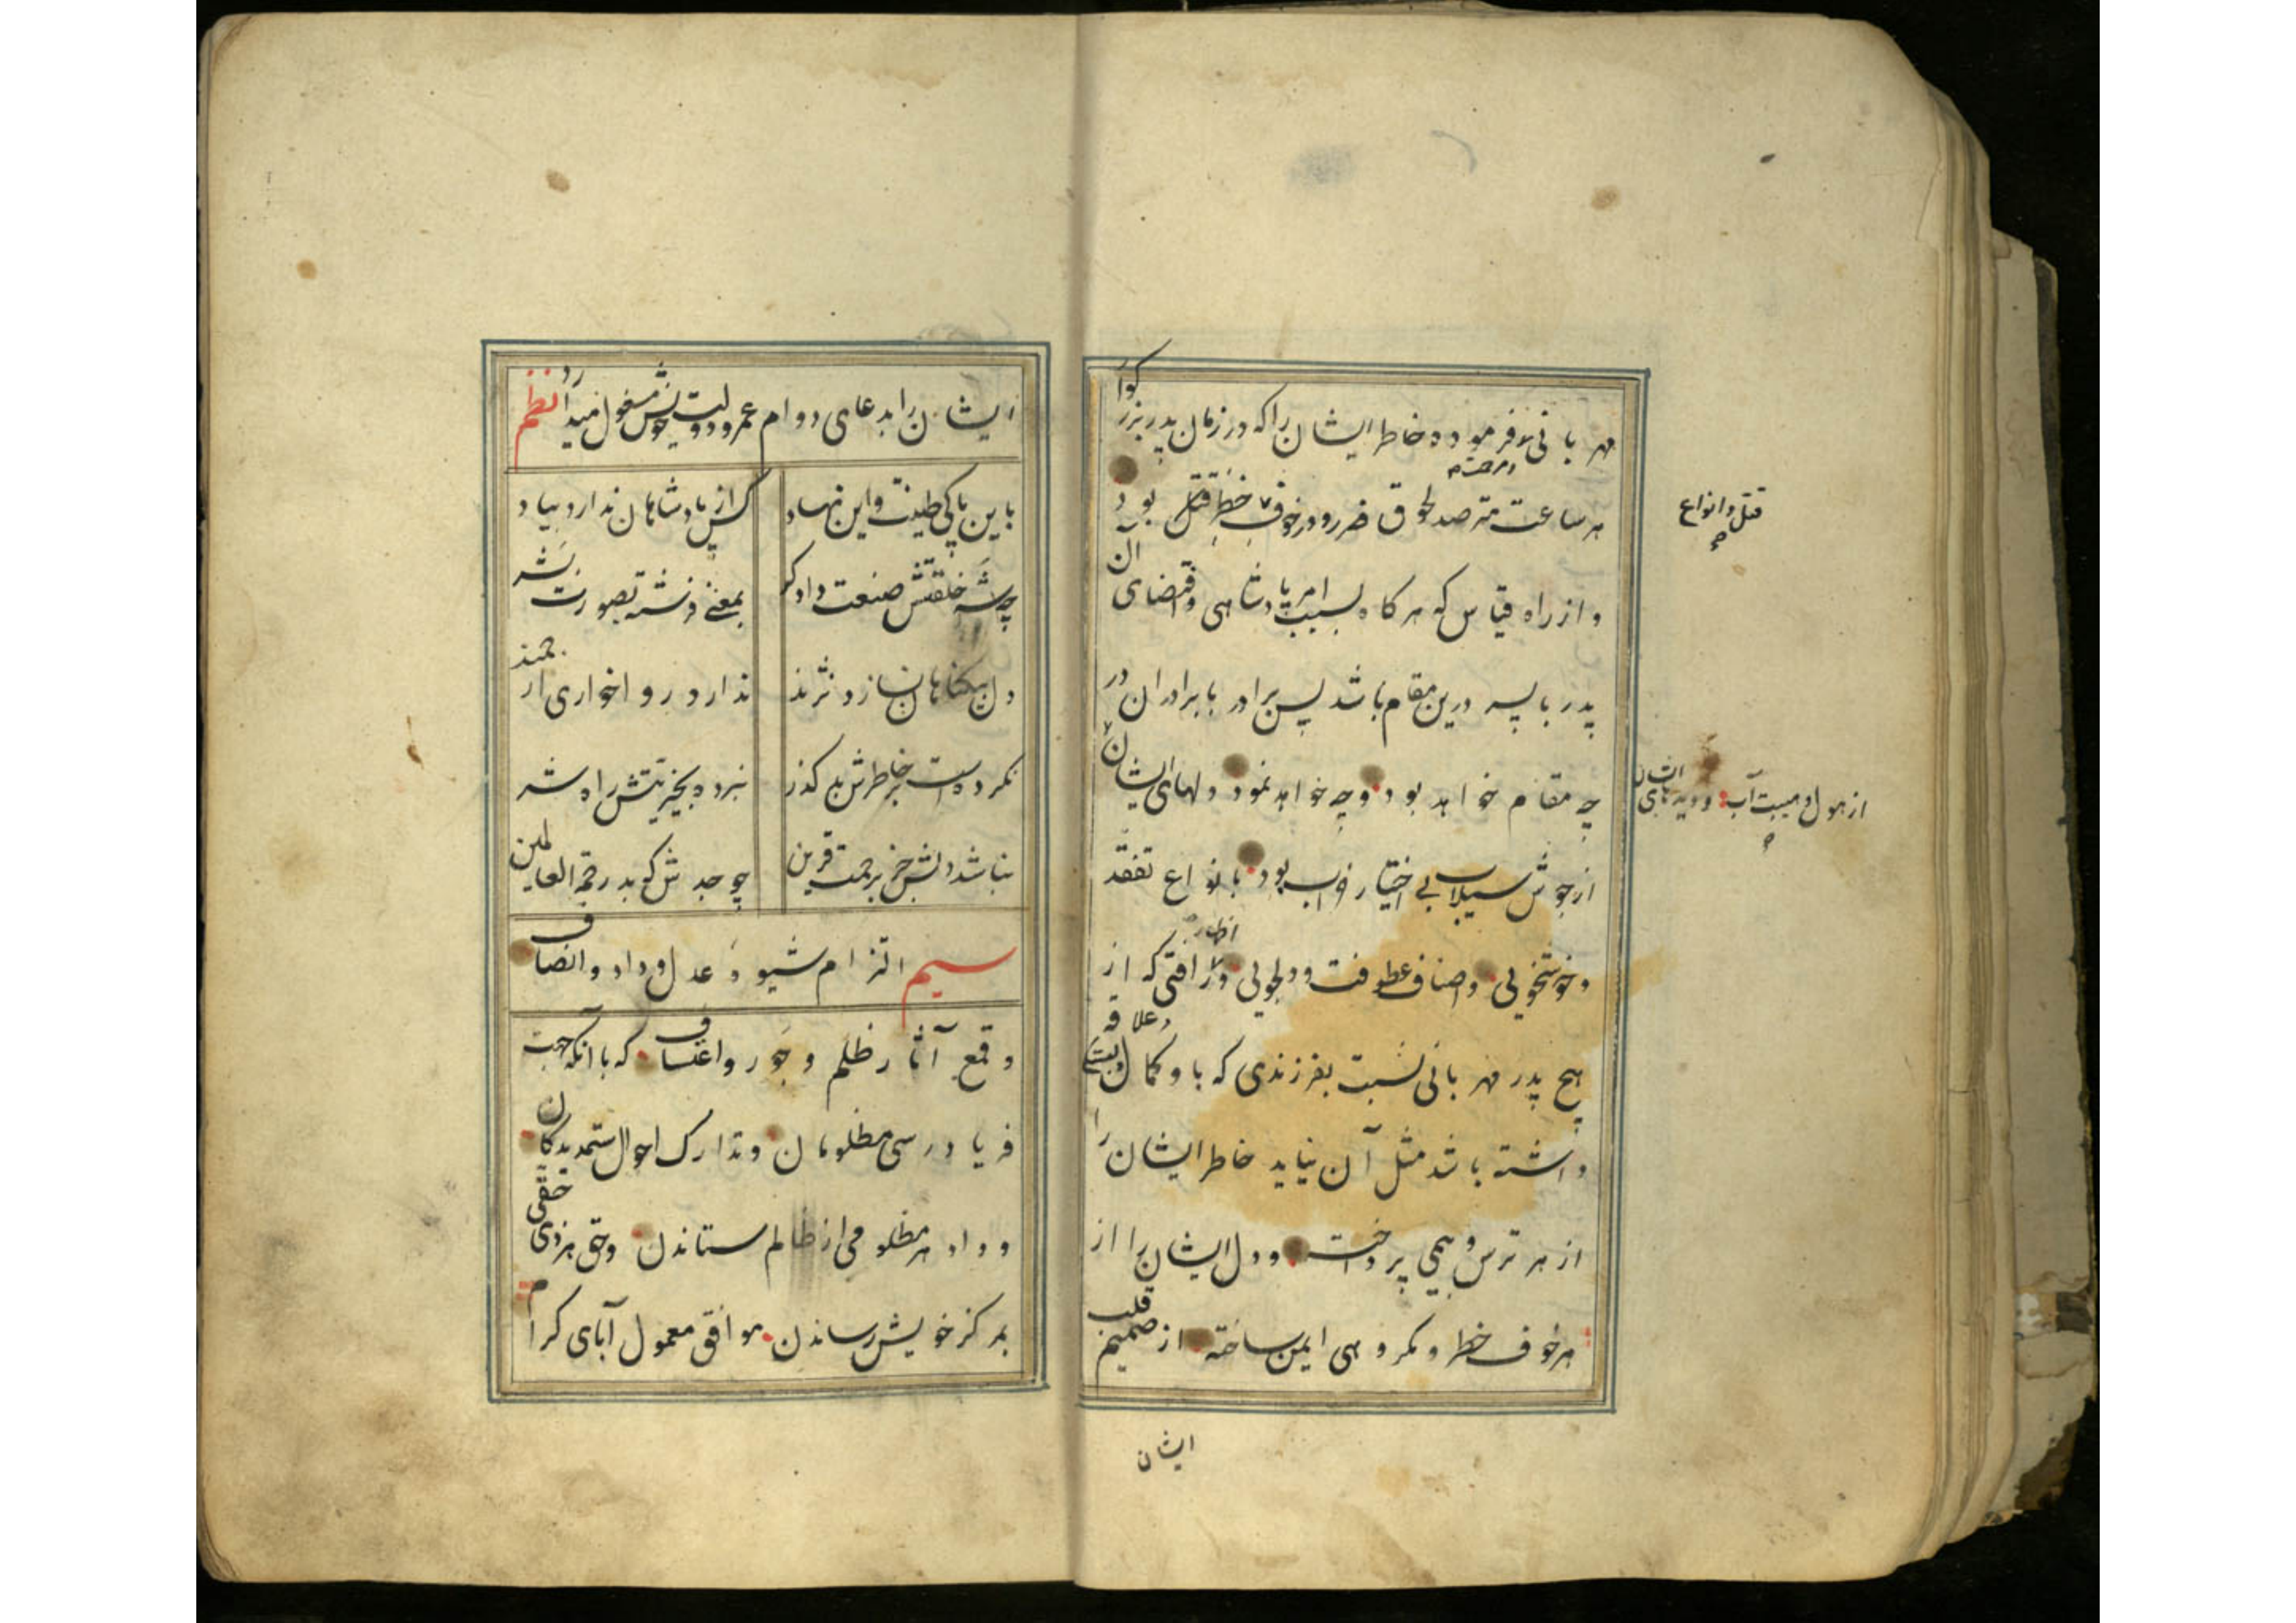 مهربانی فرموده خاطر ایشان را که در زمان پدر بزرگوار
در معرضه
هر ساعت مترصد لحوق ضرر و در خوف خطر قتل بود
قتل و انواع
و از راه قیاس که هر کاه بسبب امر پادشاهی و اقتضای آن
پدر با پسر درین مقام باشد پس برادر با برادران در
چه مقام خواهد بود و چه خواهد نمود دلهای ایشان
از هول و هیبت آب و دیدهای ایشان
از جوش سیلاب بی اختیار خواب بود بانواع تفقد
و خوشخویی و اصناف عطوفت و دلجویی و رافتی که از
اظهار
هیچ پدر مهربانی نسبت بفرزندی که باو کمال دلبستگی و علاقه
داشته باشد مثل آن نیاید خاطر ایشان را
از هر ترس و بیمی پرداخت و دل ایشان را از
هر خوف خطر و مکروهی ایمن ساخته از صمیم قلب
ایشان
ایشان را بدعای دوام عمر و دولت خویش مشغول میدارد نظم
باین پاکی طینت و این نهاد
کس از پادشاهان ندارد بیاد
چه شد خلقتش صنعت دادکر
بمعنی فرشته بصورت بشر
دل بیکناهان نسازد نژند
ندارد روا خواری ارجمند
نکرده است بر خاطرش بد کذر
نبرده بخیر نیتش راه شر
نباشد دلش جز برحمت قرین
چو جدش که بد رحمة العالمین
سیم التزام شیوهٔ عدل و داد و انصاف
و قمع آثار ظلم و جور و اعتساف که با آنکه جهت
فریادرسی مظلومان و تدارک احوال ستمدیدکان
و داد هر مظلومی از ظالم ستاندن و حق هر ذی حقی
بمرکز خویش رساندن موافق معمول آبای کرام